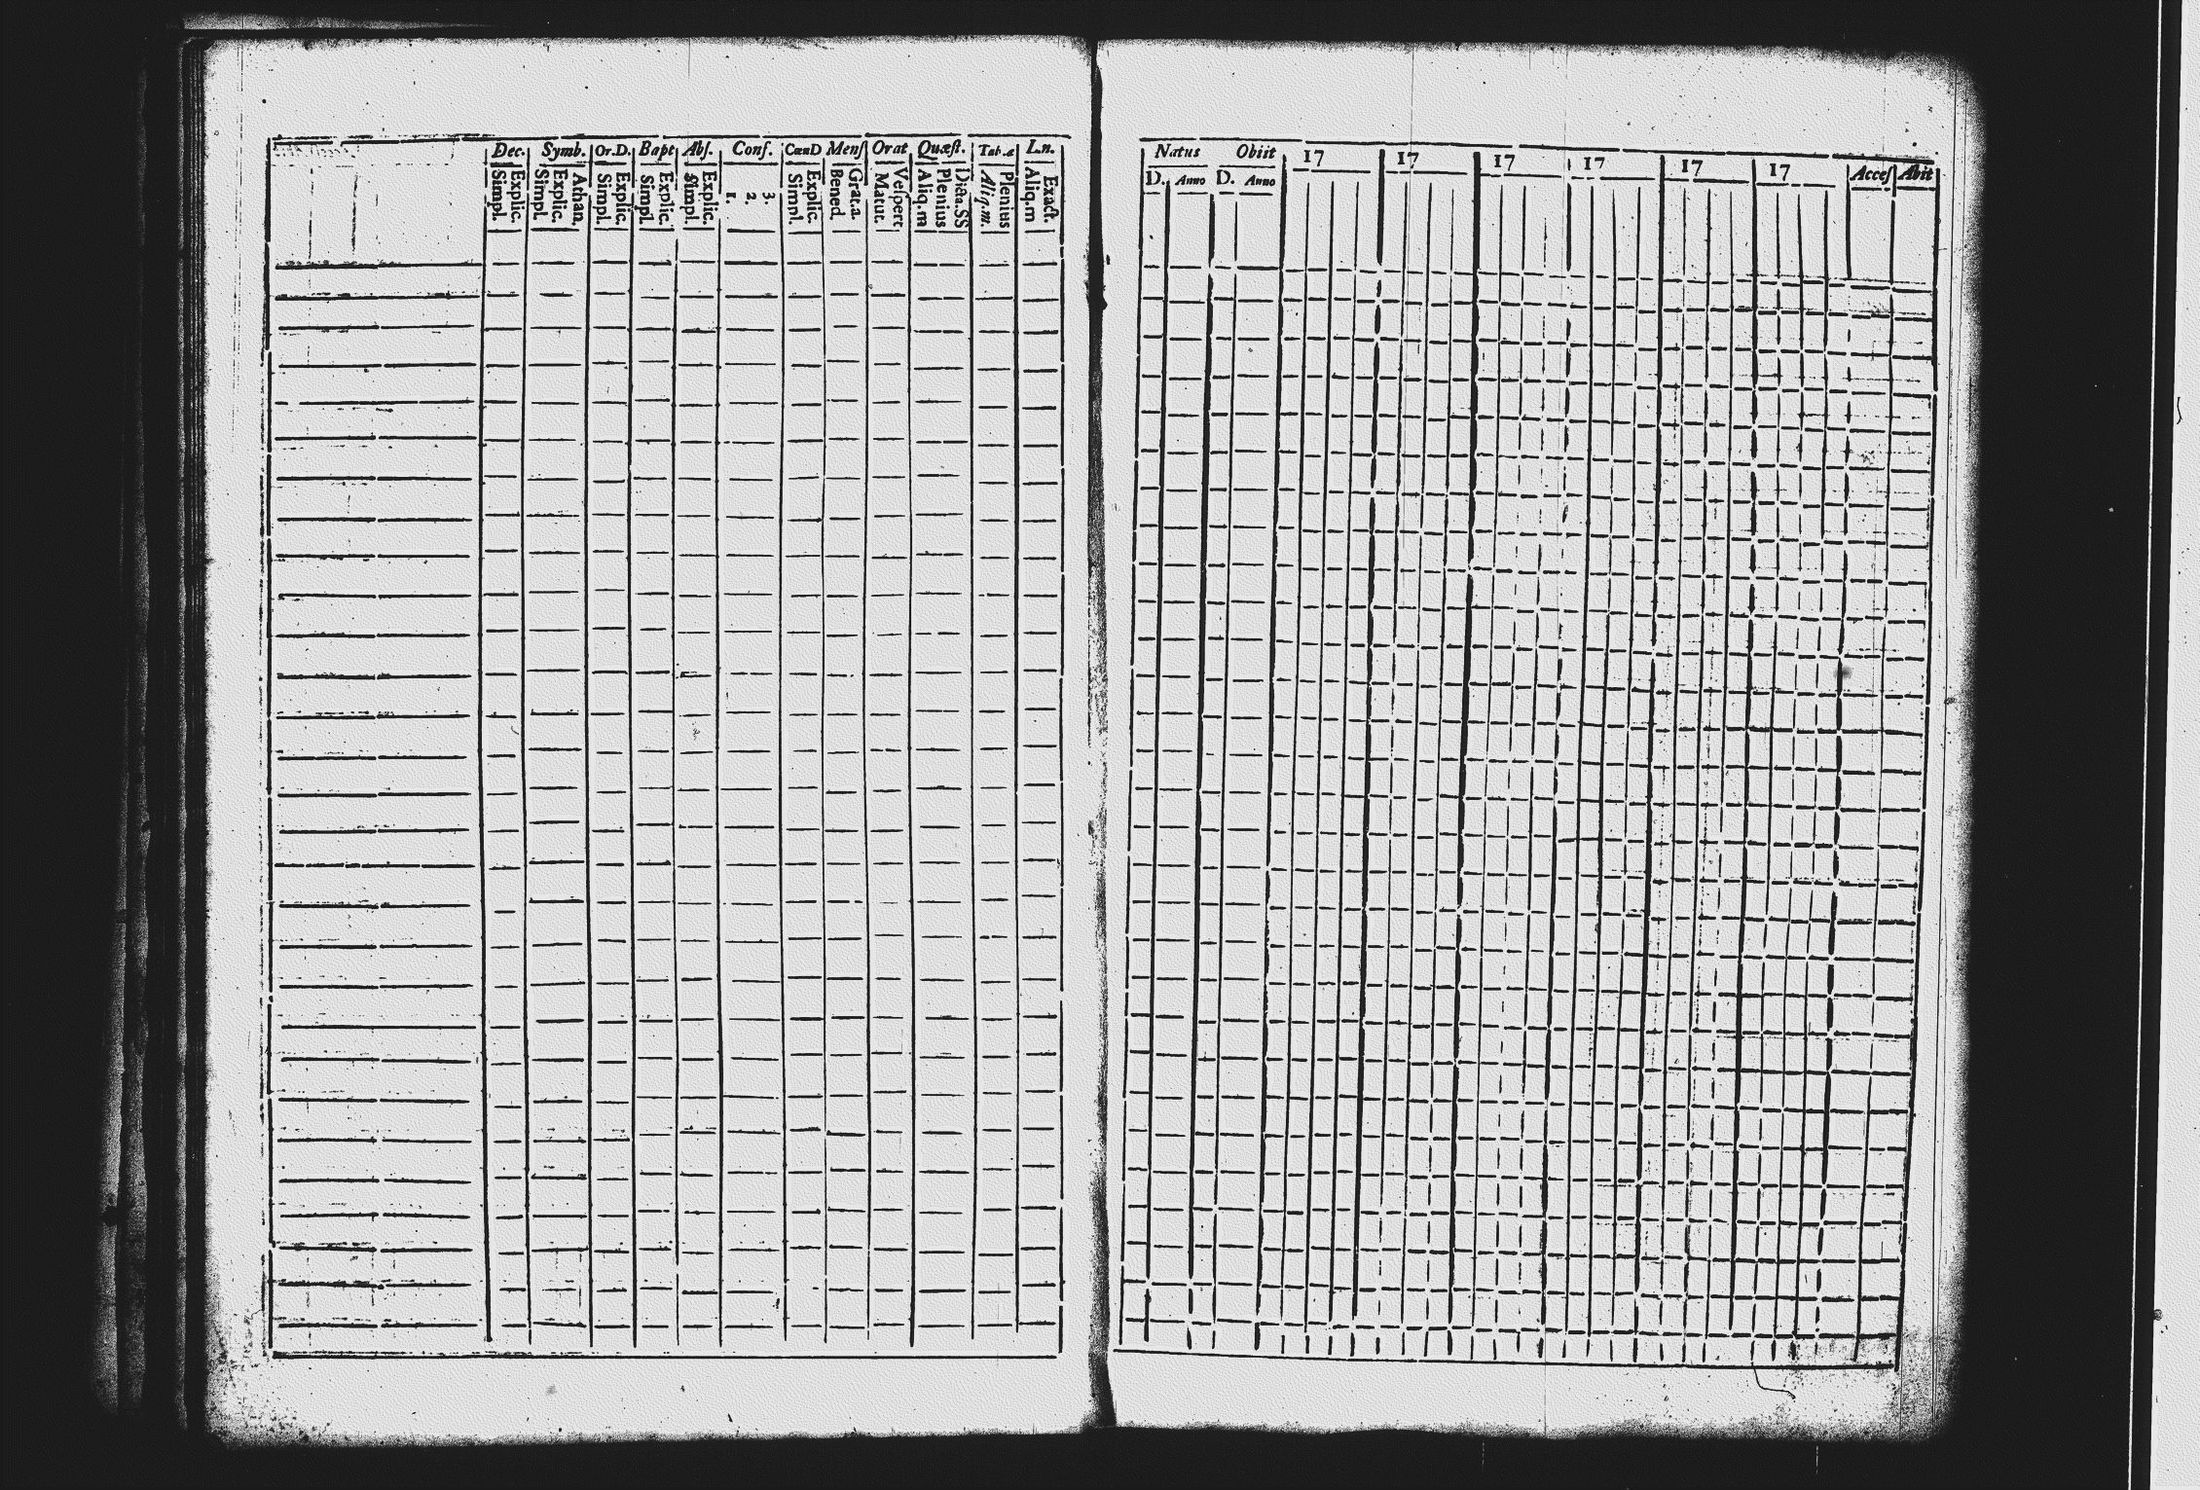 Dec. Symb. Or.D. Bapt Abſ. Conf. CœnD Menſ Orat Quæſt. Tab.æ L.n.
Explic. Simpl.
Athan. Explic. Simpl.
Explic. Simpl.
Explic. Simpl.
Explic. Simpl.
3. 2. 1.
Explic. Simpl.
Grat.a. Bened.
Veſpert. Matut.
Dicta.SS Plenius Aliq.m
Plenius Aliq.m.
Exact. Aliq.m
Natus Obiit 17 17 17 17 17 17 Acceſ Abit
D. Anno D. Anno